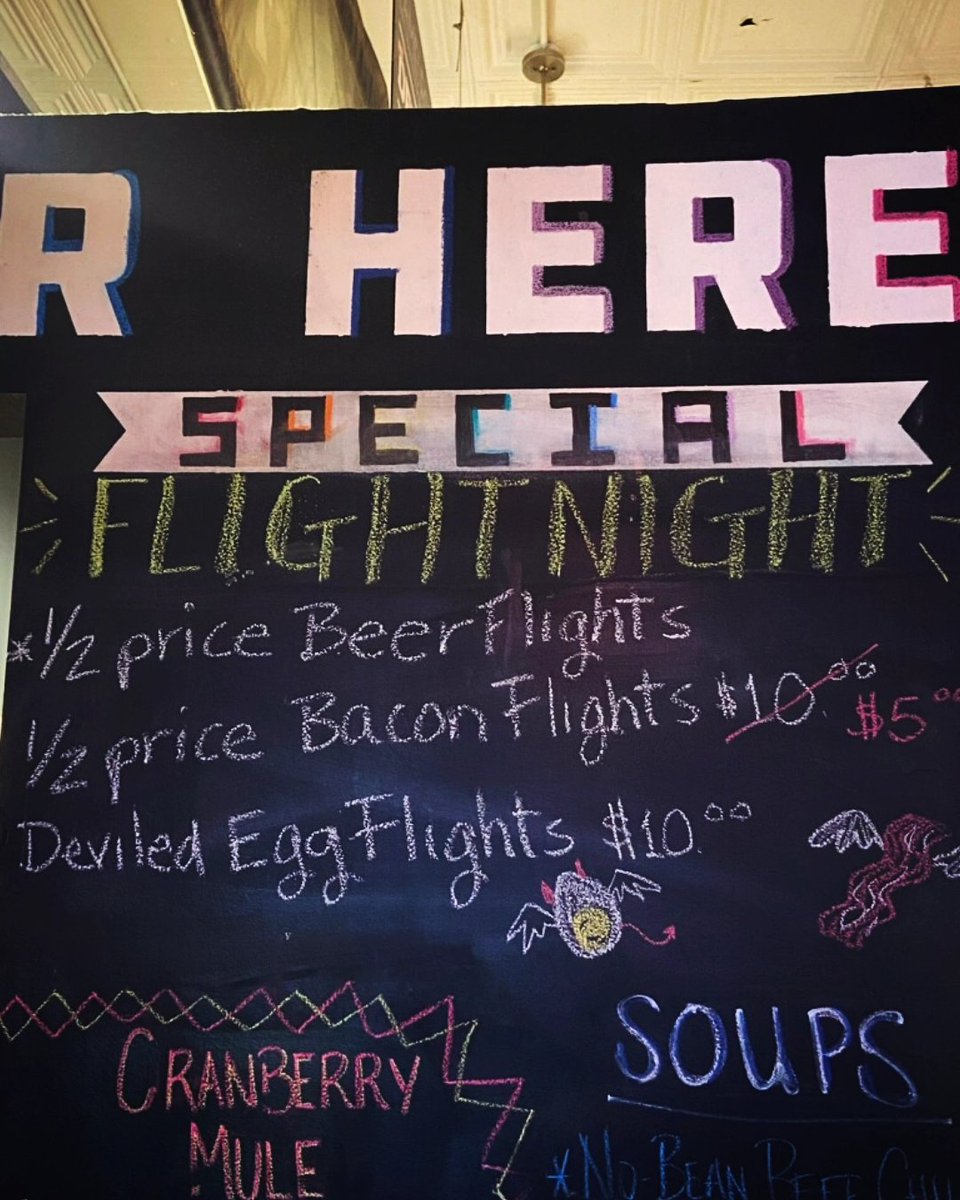 R HERE
SPECIAL
FLIGHT NIGHT
*1/2 price Beer Flights
1/2 price Bacon Flights $10.00 $5.00
Deviled Egg Flights $10.00
CRANBERRY
MULE
SOUPS
*NO-BEAN BEEF